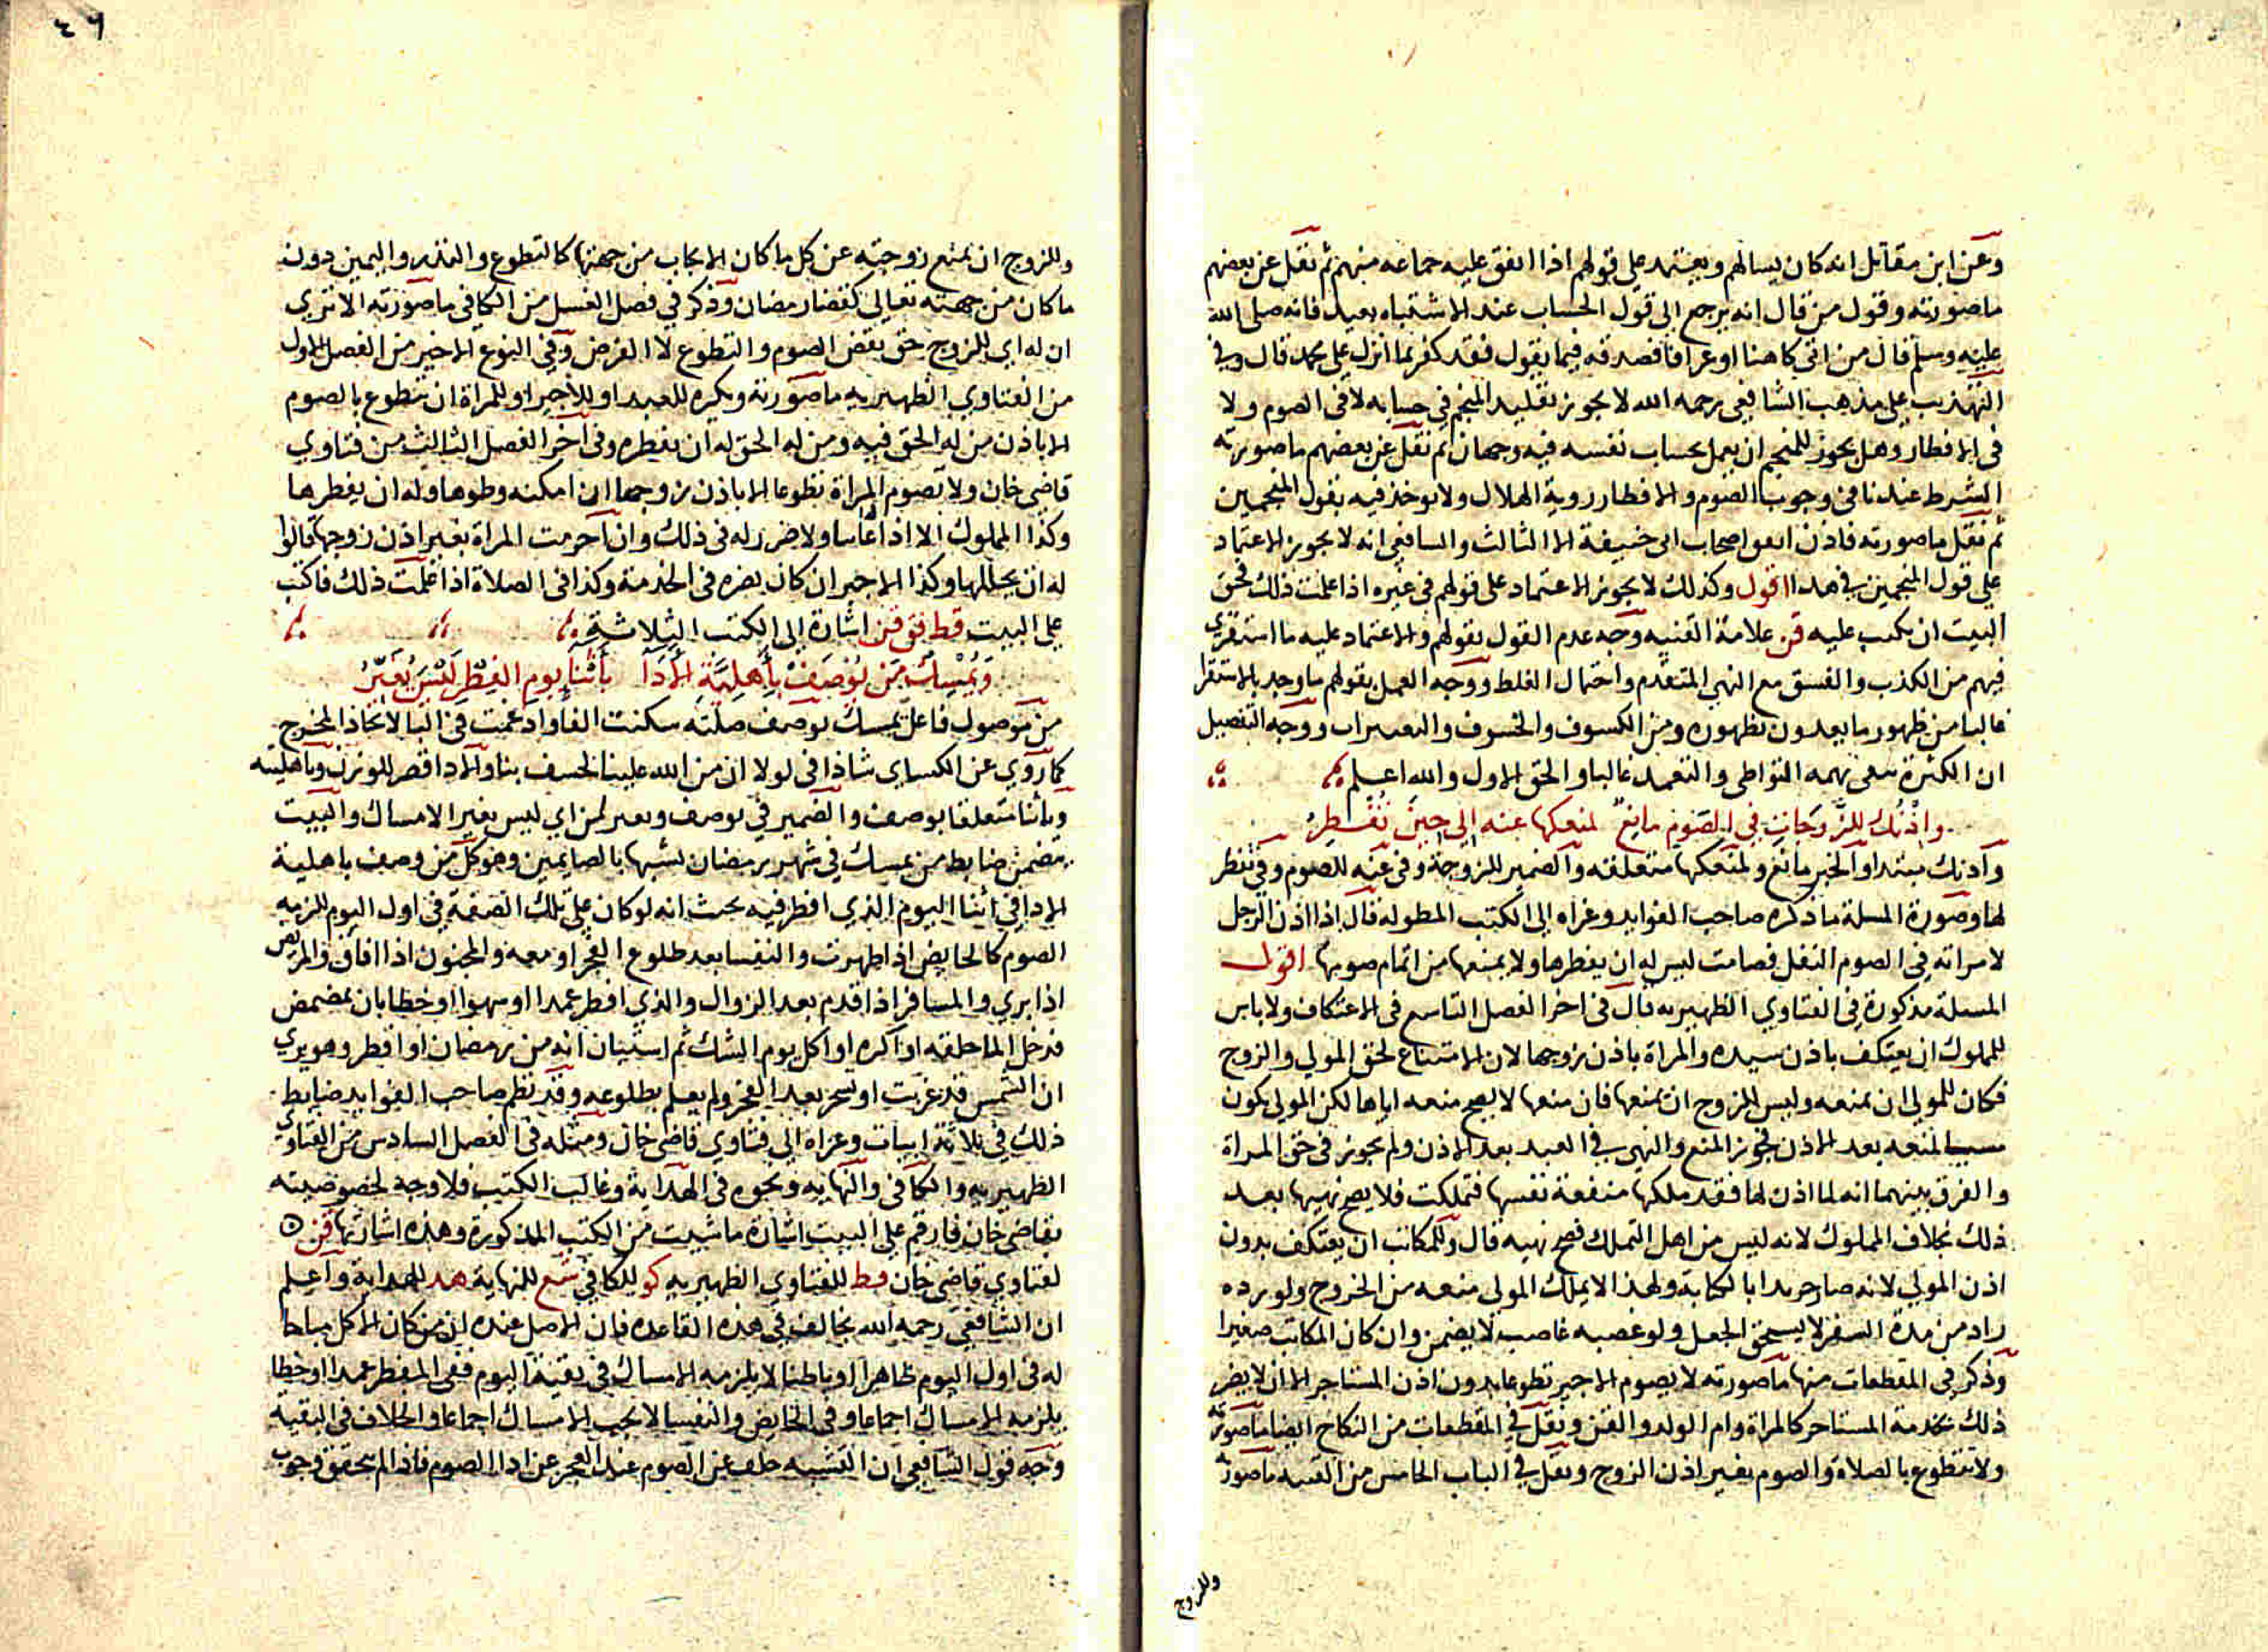 وعن ابن مقاتل انه كان يسالهم ويعتمد على قولهم اذا اتفق عليه جماعه منهم ثم نقل عن بعضهم
ما صورته وقول من قال انه يرجع الى قول الحساب عند الاشتباه بعيد فانه صلى الله
عليه وسلم قال من اتى كاهنا او عرافا فصدقه فيما يقول فقد كفر بما انزل على محمد قال وفي
التهذيب على مذهب الشافعي رحمه الله لا يجوز تقليد المنجم في حسابه لا في الصوم ولا
في الافطار وهل يجوز للمنجم ان يعمل بحساب نفسه فيه وجهان ثم نقل عن بعضهم ما صورته
الشرط عندنا في وجوب الصوم والافطار روية الهلال ولا يوخذ فيه بقول المنجمين
ثم نقل ما صورته فاذن اتفق اصحاب ابى حنيفة الا الثالث والشافعي انه لا يجوز الاعتماد
على قول المنجمين في هذا اقول وكذلك لا يجوز الاعتماد على قولهم في غيره اذا علمت ذلك فحق
البيت ان يكتب عليه قن علامة القنيه وجه عدم القول بقولهم والاعتماد عليه ما استقرى
فيهم من الكذب والفسق مع النهي المتقدم واحتمال الغلط ووجه العمل بقولهم ما وجد بالاستقرا
غالبا من ظهور ما يعدون بظهوره ومن الكسوف والخسوف والتغييرات ووجه التفصيل
ان الكثرة تنفى تهمه التواطى والتعمد غالبا والحق الاول والله اعلم
واذنك للزوجات في الصوم مانع لمنعكها عنه الى حين تفطر
واذنك مبتدا والخبر مانع ولمنعكها متعلقه والضمير للزوجة وفي عنه للصوم وفي تفطر
لها وصورة المسلة ما ذكره صاحب الفوايد وعزاه الى الكتب المطولة قال اذا اذن الرجل
لامراته في الصوم النفل فصامت ليس له ان يفطرها ولا يمنعها من اتمام صومها اقول
المسلة مذكورة في الفتاوي الظهيريه قال في اخر الفصل التاسع في الاعتكاف ولا باس
للمملوك ان يعتكف باذن سيده والمراة باذن زوجها لان الامتناع لحق المولى والزوج
فكان للمولى ان يمنعه وليس للزوج ان يمنعها فان منعها لا يصح منعه اياها لكن المولى يكون
مسيا لمنعه بعد الاذن فجوز المنع والنهي في العبد بعد الاذن ولم يجوز في حق المراة
والفرق بينهما انه لما اذن لها فقد ملكها منفعة نفسها فتملكت فلا يصح نهيها بعد
ذلك بخلاف المملوك لانه ليس من اهل التملك فصح نهيه قال وللمكاتب ان يعتكف بدون
اذن المولى لانه صار حر يدا بالكتابة ولهذا لا يملك المولى منعه من الخروج ولو رده
راد من مدة السفر لا يستحق الجعل ولو غصبه غاصب لا يضمن وان كان المكاتب صغيرا
وذكر في المقطعات منها ما صورته لا يصوم الاجير تطوعا بدون اذن المستاجر الا ان لا يضر
ذلك بخدمة المستاجر كالمراة وام الولد والقن ونقل في المقطعات من النكاح ايضا ما صورته
ولا تتطوع بالصلاة والصوم بغير اذن الزوج ونقل في الباب الخامس من القنيه ما صورته
وللزوج
٤٦
وللزوج ان يمنع زوجته عن كل ما كان الايجاب من جهتها كالتطوع والنذر واليمين دون
ما كان من جهته تعالى كقضا رمضان وذكر في فصل الغسل من الكافى ما صورته الا ترى
ان له اي للزوج حق نقض الصوم والتطوع لا الفرض وفي النوع الاخير من الفصل الاول
من الفتاوي الظهيريه ما صورته ويكره للعبد او للاجير او للمراة ان تتطوع بالصوم
الا باذن من له الحق فيه ومن له الحق له ان يفطره وفى اخر الفصل الثالث من فتاوي
قاضى خان ولا تصوم المراة تطوعا الا باذن زوجها ان امكنه وطوها وله ان يفطرها
وكذا المملوك الا اذا غابا ولا ضرر له في ذلك وان احرمت المراة بغير اذن زوجها قالوا
له ان يحللها وكذا الاجير ان كان يضره في الخدمة وكذا في الصلاة اذا علمت ذلك فاكتب
على البيت قط فو قن اشارة الى الكتب الثلاثة
ويمسك من يوصف بأهلية الادا بأثنا يوم الفطر ليس يغير
من موصول فاعل يمسك يوصف صلته سكنت الفا وادغمت في البا لاتحاد المخرج
كما روي عن الكساي شاذا في لولا ان من الله علينا لخسف بنا والادا قصر للوزن وباهلية
وباثنا متعلقا بوصف والضمير في يوصف ويغير لمن اي ليس يغير الامساك والبيت
يتضمن ضابط من يمسك في شهر رمضان تشبها بالصايمين وهو كل من وصف باهلية
الادا في اثنا اليوم الذي افطر فيه بحيث انه لو كان على تلك الصفة في اول اليوم للزمه
الصوم كالحايض اذا طهرت والنفسا بعد طلوع الفجر او معه والمجنون اذا افاق والمريض
اذا بري والمسافر اذا قدم بعد الزوال والذي افطر عمدا او سهوا او خطا بان تمضمض
فدخل الما حلقه او اكره او اكل يوم الشك ثم استبان انه من رمضان او افطر وهو يرى
ان الشمس قد غربت او تسحر بعد الفجر ولم يعلم بطلوعه وقد نظم صاحب الفوايد ضابط
ذلك في ثلاثة ابيات وعزاه الى فتاوي قاضى خان ومثله فى الفصل السادس من الفتاوي
الظهيريه والكافى والنهايه ونحوه في الهداية وغالب الكتب فلا وجه لخصوصيته
بقاضى خان فارقم على البيت اشارة ما شيت من الكتب المذكورة وهذه اشاراتها قن
لفتاوي قاضى خان فط للفتاوي الظهيريه كو للكافي شع للنهاية هد للهداية واعلم
ان الشافعي رحمه الله يخالف في هذه القاعده فان الاصل عنده ان من كان الاكل مباحا
له في اول اليوم ظاهرا او باطنا لا يلزمه الامساك في بقية اليوم ففى المفطر عمدا او خطا
يلزمه الامساك اجماعا وفى الحايض والنفسا لا يجب الامساك اجماعا والخلاف في البقية
وجه قول الشافعي ان التشبه خلف عن الصوم عند العجز عن ادا الصوم فاذا لم يتحقق وجوب